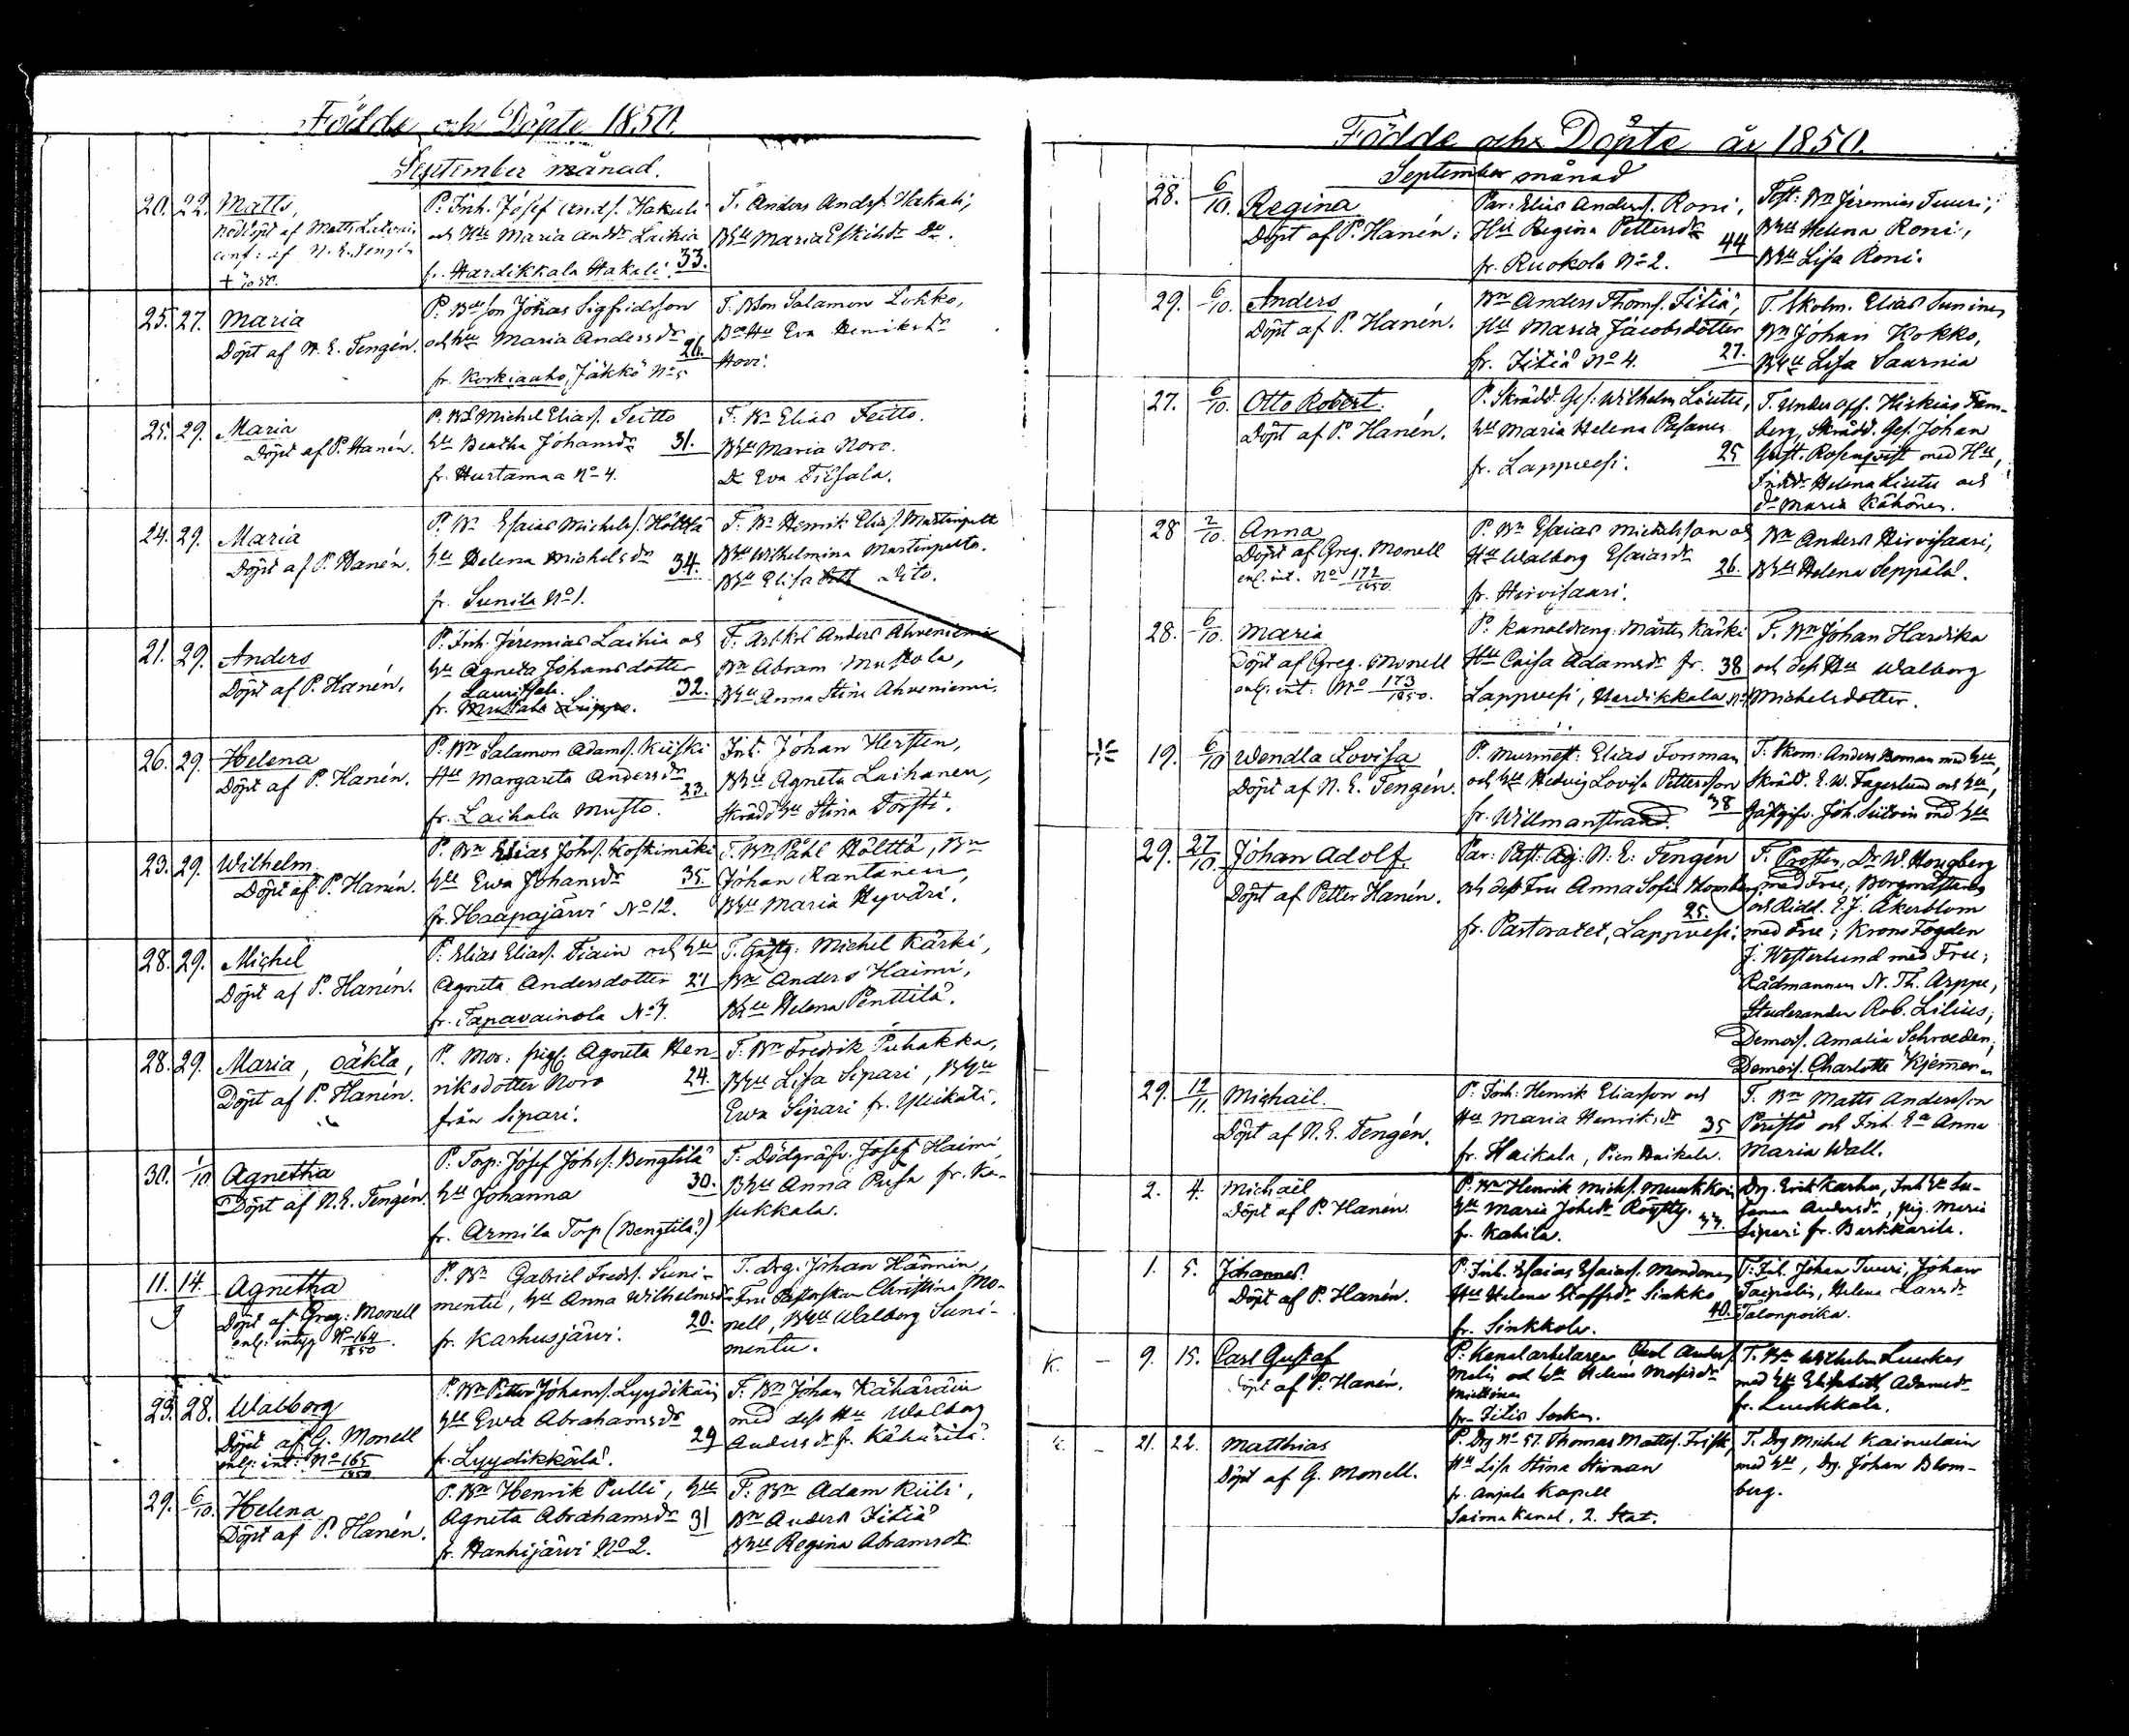 Födde och Döpte 1850.
September månad.
20. 22. Matts,
Nöddöpt af Matts
conf: af N. E. Fengén
P. Inh. Josef Andsf. Hakuli
och Hu Maria Andsdr Laikia
fr. Hardikkala Hakali 33.
T. Anders Andsf. Hakali,
BHu Maria Eskilsdr Do.
25. 27. Maria
Döpt af N. E. Fengén.
P. Bdeson Johas Sigfridsson
och hu Maria Andersdr 26.
fr. Korkiaaho, Jäkkö No 5
T. BSon Salamon Lohko,
Eva Henriksdr
Hovi.
25. 29. Maria
Döpt af P. Hanén.
P. Bd Michel Eliasf. Teitto
hu Beatha Johansdr 31.
fr. Hurtamaa No 4.
T. Bn Elias Teitto.
BHu Maria Noro.
Dr Eva Tilsala.
24. 29. Maria
Döpt af P. Hanén.
P. Bn Esaias Michelsf. Hölttä
hu Helena Michelsdr 34.
fr. Sunila No 1.
T. Bn Henrik Eliasf. Martinpelt
BHu Wilhelmina Martinpelto.
BHu Elisa dito.
21. 29. Anders
Döpt af P. Hanén.
P. Inh. Jeremias Laihia och
hu Agneta Johansdotter
Laurisfala. 32.
fr.
T. Anders Ahveniemi
Bn Abram Mustola,
BHu Anna Stina Ahveniemi.
26. 29. Helena
Döpt af P. Hanén.
P. Bn Salamon Adamsf. Kiiski
Hu Margareta Andersdr 23.
fr. Laihala Musto.
Inh. Johan Hersten,
BHu Agneta Laihanen,
Skrädd hu Stina Torsti.
23. 29. Wilhelm.
Döpt af P. Hanén.
P. Bn Elias Johsf. Koskimäki
hu Ewa Johansdr 35.
fr. Haapajärvi No 12.
T. Bn Påhl Hölttä, Bn
Johan Rantanen,
BHu Maria Hyväri.
28. 29. Michel
Döpt af P. Hanén.
P. Elias Eliasf. Tiain och hu
Agneta Andersdotter 21
fr. Tapavainola No 7.
T. Gästg: Michel Kärki,
Bn Anders Haimi,
BHu Helena Penttilä.
28. 29. Maria, oäkta,
Döpt af P. Hanén.
P. Mor: pig. Agneta Hen-
riksdotter Noro 24.
från Sipari.
T. Bn Fredrik Puhakka,
BHu Lisa Sipari, BHu
Ewa Sipari fr. Yllikäli.
30. 1/10 Agnetha
Döpt af N. E. Fengén.
P. Torp: Josef Johsf. Bengtilä
hu Johanna 30.
fr. Armila Torp (Bengtilä?)
T. Dödgräfv. Josef Haimi
BHu Anna Pusa fr. Ka-
sukkala.
11. 14. Agnetha
Döpt af Greg: Monell
enl: intyg No 164/1850.
P. Bn Gabriel Fredsf. Suni-
mentu, hu Anna Wilhelmsdr
fr. Karhusjärvi. 20.
T. drg. Johan Hännin,
Fru Pastorskan Christina Mo-
nell, BHu Walborg Suni-
mentu.
23. 28. Walborg
Döpt af G. Monell
enl: int: No 165/1850
P. Bn Petter Johansf. Lyydikäin
hu Ewa Abrahamsdr 29
fr. Lyydikkälä.
T. Bn Johan Kähäräin
med dess Hu Walborg
Andersdr fr. Kähärilä.
29. 6/10. Helena
Döpt af P. Hanén.
P. Bn Henrik Pulli, hu
Agneta Abrahamsdr 31
fr. Hanhijärvi No 2.
T. Bn Adam Kiili,
Bn Anders Iitiä
BHu Regina Abramsdr
Födde och Döpte år 1850.
September månad
28. 6/10. Regina
Döpt af P. Hanén.
Par: Elias Andersf. Roni,
Hu Regina Pettersdr 44
fr. Ruokola No 2.
Test: Bn Jeremias Tuuri,
BHu Helena Roni,
BHu Lisa Roni.
29. 6/10. Anders
Döpt af P. Hanén.
Bn Anders Thomsf. Iitiä,
Hu Maria Jacobsdotter
fr. Iitiä No 4. 27.
T. Skolm. Elias Suninen
Bn Johan Kokko,
BHu Lisa Saarnia
27. 6/10. Otto Robert.
Döpt af P. Hanén.
P. Skrädd Ges. Wilhelm Liutu,
hu Maria Helena Pasanen
fr. Lappvesi. 25
T. Underoff. Hiskias Fäm-
berg, Skrädd. Ges. Johan
Gust. Rosenqvist med Hu,
Helena Liutu och
do Maria Kähönen.
28 2/10. Anna
Döpt af Greg. Monell
enl. int. No 172/1850.
P. Bn Esaias Michelsson och
Hu Walborg Esaiasdr 26.
fr. Hirvisaari.
Bn Anders Hirvisaari,
BHu Helena Seppälä.
28. 6/10. Maria
Döpt af Greg. Monell
enl. int: No 173/1850.
P. Kanaldreng. Mårten Kärki
Hu Caisa Adamsdr fr. 38
Lappvesi, Hardikkala
T. Bn Johan Hardika
och dess Hu Walborg
Michelsdotter.
19. 6/10 Wendla Lovisa
Döpt af N. E. Fengén.
P. Murmest: Elias Forsman
och hu Hedvig Lovisa Pettersson
fr. Willmanstrand. 38
T. Kom: Anders Boman med hu,
Skrädd. E. W. Fagerlund och hu,
Gästgifv. Joh. Siitoin med hu
29. 27/10. Johan Adolf.
Döpt af Petter Hanén.
Par: Past. Adj: N. E. Fengén
och dess Fru Anna Sofia
25.
fr. Pastoratet, Lappvesi;
T. Prosten, Dr W. Hougberg
med Frue, Borgmästaren
och Ridd. E. J. Åkerblom
med Frue; Krono Fogden
J. Westerlund med Frue;
Rådmannen N. Th. Arppe,
Studeranden Rob. Lilius;
Demois. Amalia Schroeder,
Demois. Charlotte
29. 12/11. Michaël.
Döpt af N. E. Fengén.
P. Inh: Henrik Eliasson och
Hu Maria Henriksdr 35
fr. Haikala, Pien Haikala.
T. Bn Matts Andersson
Peristö och Inh. Ea Anna
Maria Wall.
2. 4. Michaël
Döpt af P. Hanén.
P. Bn Henrik Michsf. Muukkoin
hu Maria Johsdr
fr. Kahila. 37.
Drg. Erik Karhu, Inh hu Su-
sanna Andersdr, pig. Maria
Sipari fr. Barkkarila.
1. 5. Johannes.
Döpt af P. Hanén.
P. Inh. Esaias Esaiasf. Mondonen
Hu Helena Staffsdr Sinkko
40.
fr. Sinkkola.
T. Inh. Johan Tuuri, Johan
Taipalin, Helena Larsdr
Talonpoika.
K. – 9. 15. Carl Gustaf
Döpt af P. Hanén.
P: Kanalarbetaren Carl Andersf.
Malin och hu Helena Mosisdr
Miettinen
fr. Iitiä
T. Bn Wilhelm Luukas
med hu Elisabeth Adamsdr
fr. Luukkala.
K. – 21. 22. Matthias
Döpt af G. Monell.
P. Drg No 57. Thomas Mattsf. Frisk,
Hu Lisa Stina
fr. Anjala Kapell
Saima Kanal, 2. Stat.
T. Drg Michel Kainulain
med hu, Drg. Johan Blom-
berg.